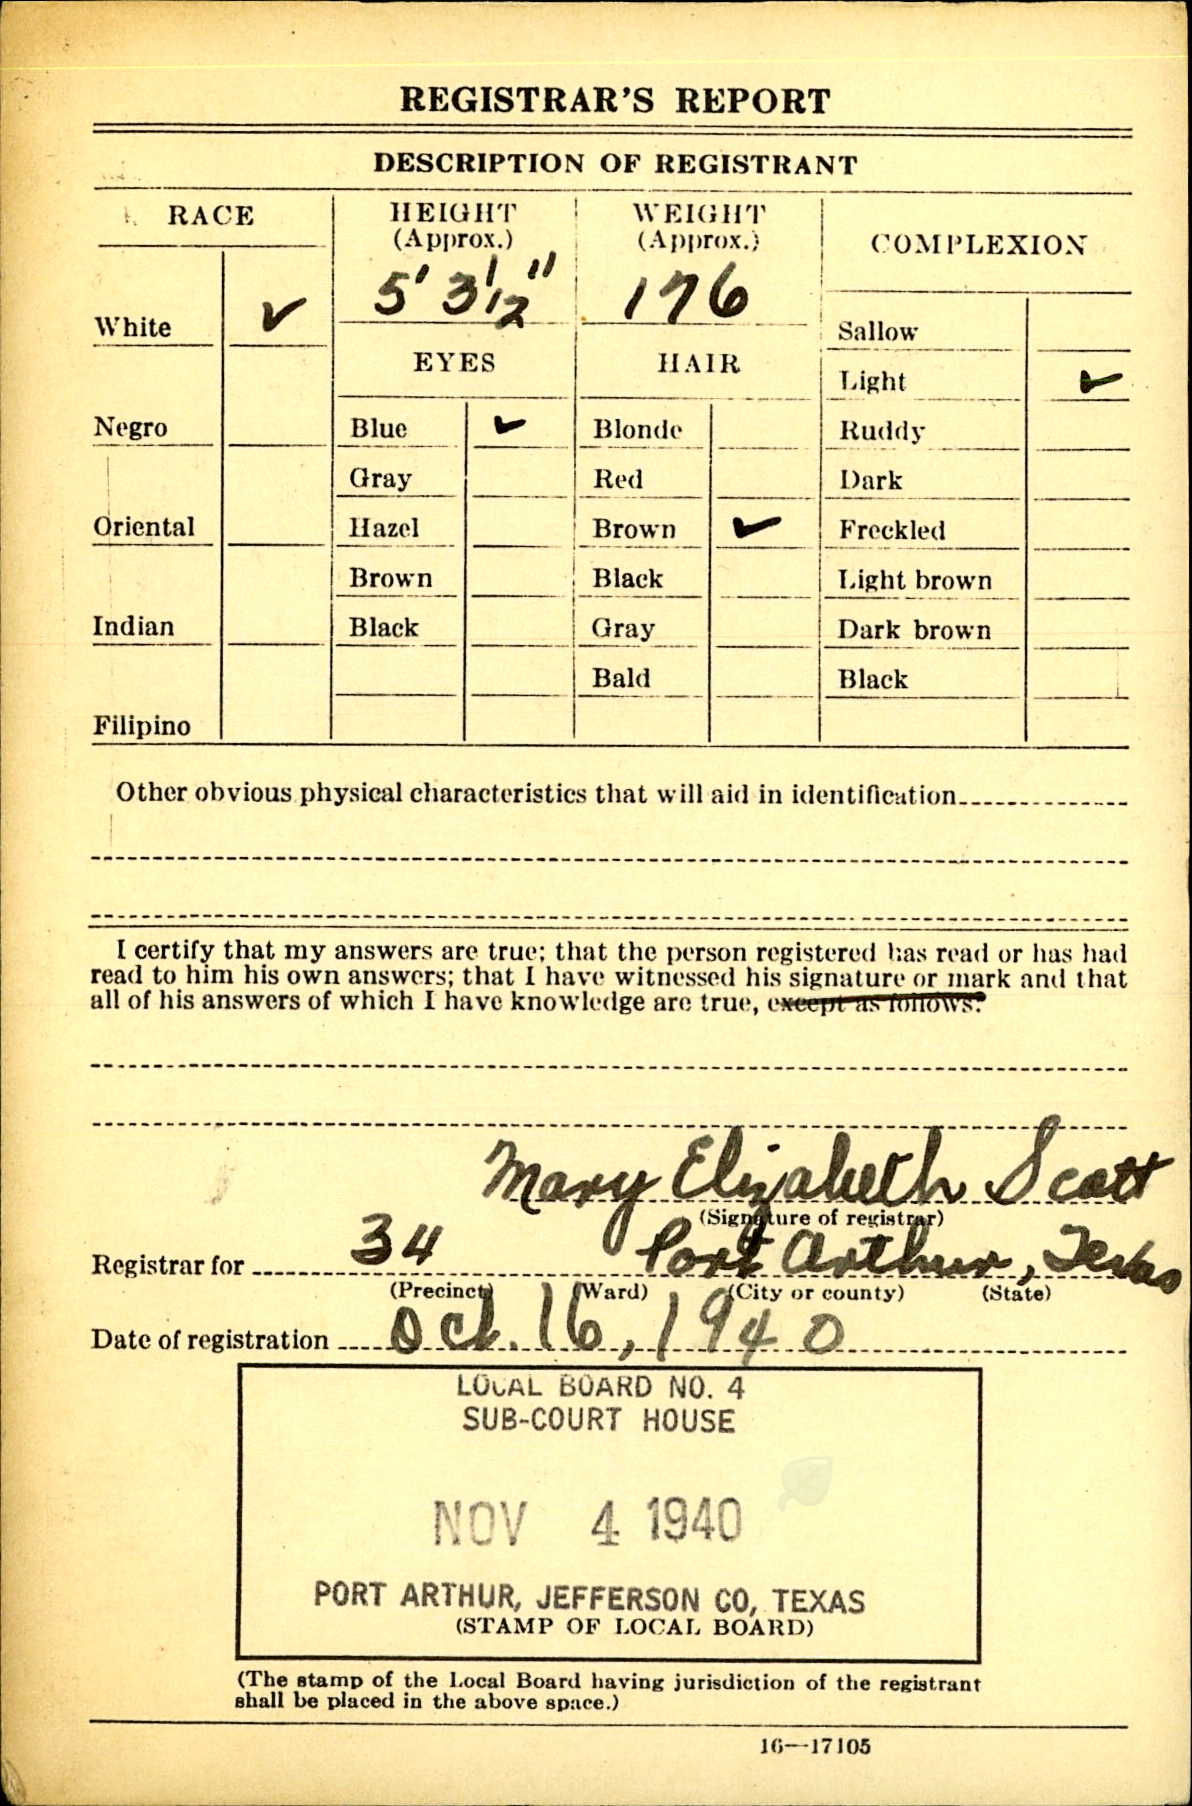 REGISTRAR'S REPORT
DESCRIPTION OF REGISTRANT
RACE
HEIGHT
(Approx.)
WEIGHT
(Approx.)
COMPLEXION
5' 3 1/2"
176
White ✓
EYES
HAIR
Sallow
Light ✓
Negro
Blue ✓
Blonde
Ruddy
Gray
Red
Dark
Oriental
Hazel
Brown ✓
Freckled
Brown
Black
Light brown
Indian
Black
Gray
Dark brown
Bald
Black
Filipino
Other obvious physical characteristics that will aid in identification
I certify that my answers are true; that the person registered has read or has had
read to him his own answers; that I have witnessed his signature or mark and that
all of his answers of which I have knowledge are true, except as follows:
Mary Elizabeth Scott
(Signature of registrar)
Registrar for 34 Port Arthur, Texas
(Precinct) (Ward) (City or county) (State)
Date of registration Oct. 16, 1940
LOCAL BOARD NO. 4
SUB-COURT HOUSE
NOV 4 1940
PORT ARTHUR, JEFFERSON CO, TEXAS
(STAMP OF LOCAL BOARD)
(The stamp of the Local Board having jurisdiction of the registrant
shall be placed in the above space.)
16—17105